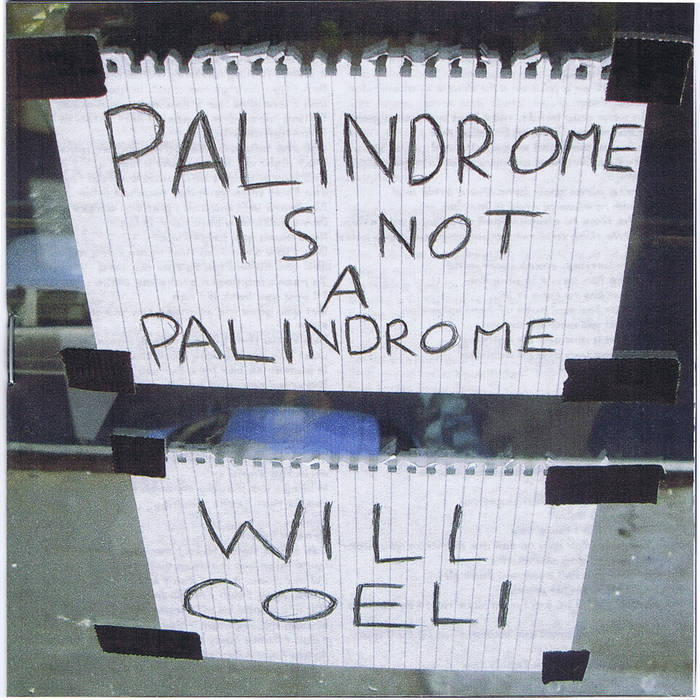 PALINDROME
IS NOT
A
PALINDROME
WILL
COELI